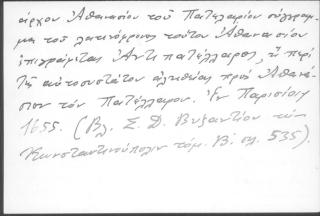 άρχου Αθανασίου τοῦ Πατελαρίου σύγγραμ-
μα τοῦ λατινόφρονος τούτου Αθανασίου
ἐπιγράφεται Αντιπατέλλαρος, ἢ περὶ
τῆς αὐτοσυστάτου ἀληθείας πρὸς Αθανά-
σιον τὸν Πατέλλαρον. Ἐν Παρισίοις
1655. (Βλ. Σ. Δ. Βυζαντίου την
Κωνσταντινούπολιν τόμ. Β΄. σελ. 535).